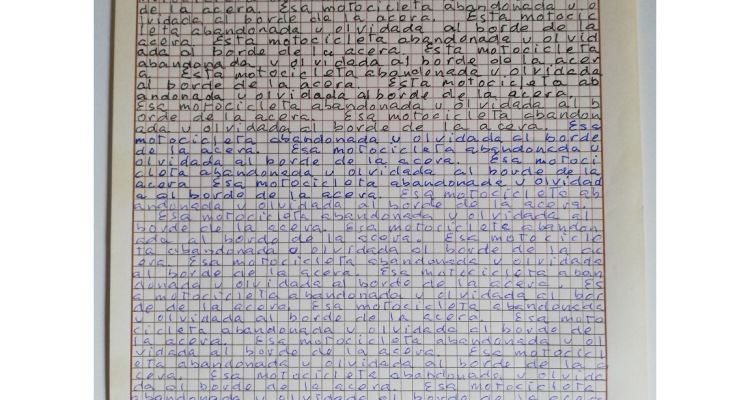 de la acera. Esa motocicleta abandonada y o
lvidada al borde de la acera. Esta motoc
leta abandonada y olvidada al borde de la
acera. Esta motocicleta abandonada y olvid
ada al borde de la acera. Esta motocic
abandonada y olvidada al borde de la acer
a. Esta motocicleta abandonada y olvidada
al borde de la acera. Esta motocicleta ab
andonada y olvidada al borde de la acera.
Esa motocicleta abandonada y olvidada al b
orde de la acera. Esa motocicleta abandon
ada y olvidada al borde de la acera. Esa
motocicleta abandonada y olvidada al borde
de la acera. Esa motocicleta abandonada y
olvidada al borde de la acera. Esa motoci
cleta abandonada y olvidada al borde de la
acera Esa motocicleta abandonada y olvidad
a al borde de la acera. Esa motocicleta ab
andonada y olvidada al borde de la acera.
Esa motocicleta abandonada y olvidada al
borde de la acera. Esa motocicleta abandon
ada al borde de la acera. Esa motocicle
ta abandonada y olvidada al borde de la ac
era. Esa motocicleta abandonada y olvidada
al borde de la acera. Esa motocicleta aban
donada y olvidada al borde de la acera. Es
a motocicleta abandonada y olvidada al bor
de de la acera. Esa motocicleta abandonada
y olvidada al borde de la acera. Esa moto
cicleta abandonada y olvidada al borde de
la acera. Esa motocicleta abandonada y ol
vidada al borde de la acera. Esa motocicl
eta abandonada y olvidada al borde de la a
cera. Esa motocicleta abandonada y olvida
da al borde de la acera. Esa motocicleta
abandonada y olvidada al borde de la acer